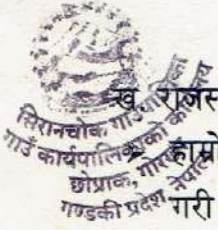 ख. राजस
सिरानचोक गाउँपालिका
गाउँ कार्यपालिकाको कार्यालय
हाम्रो
छोप्राक, गोरखा
गण्डकी प्रदेश, नेपाल
गरी